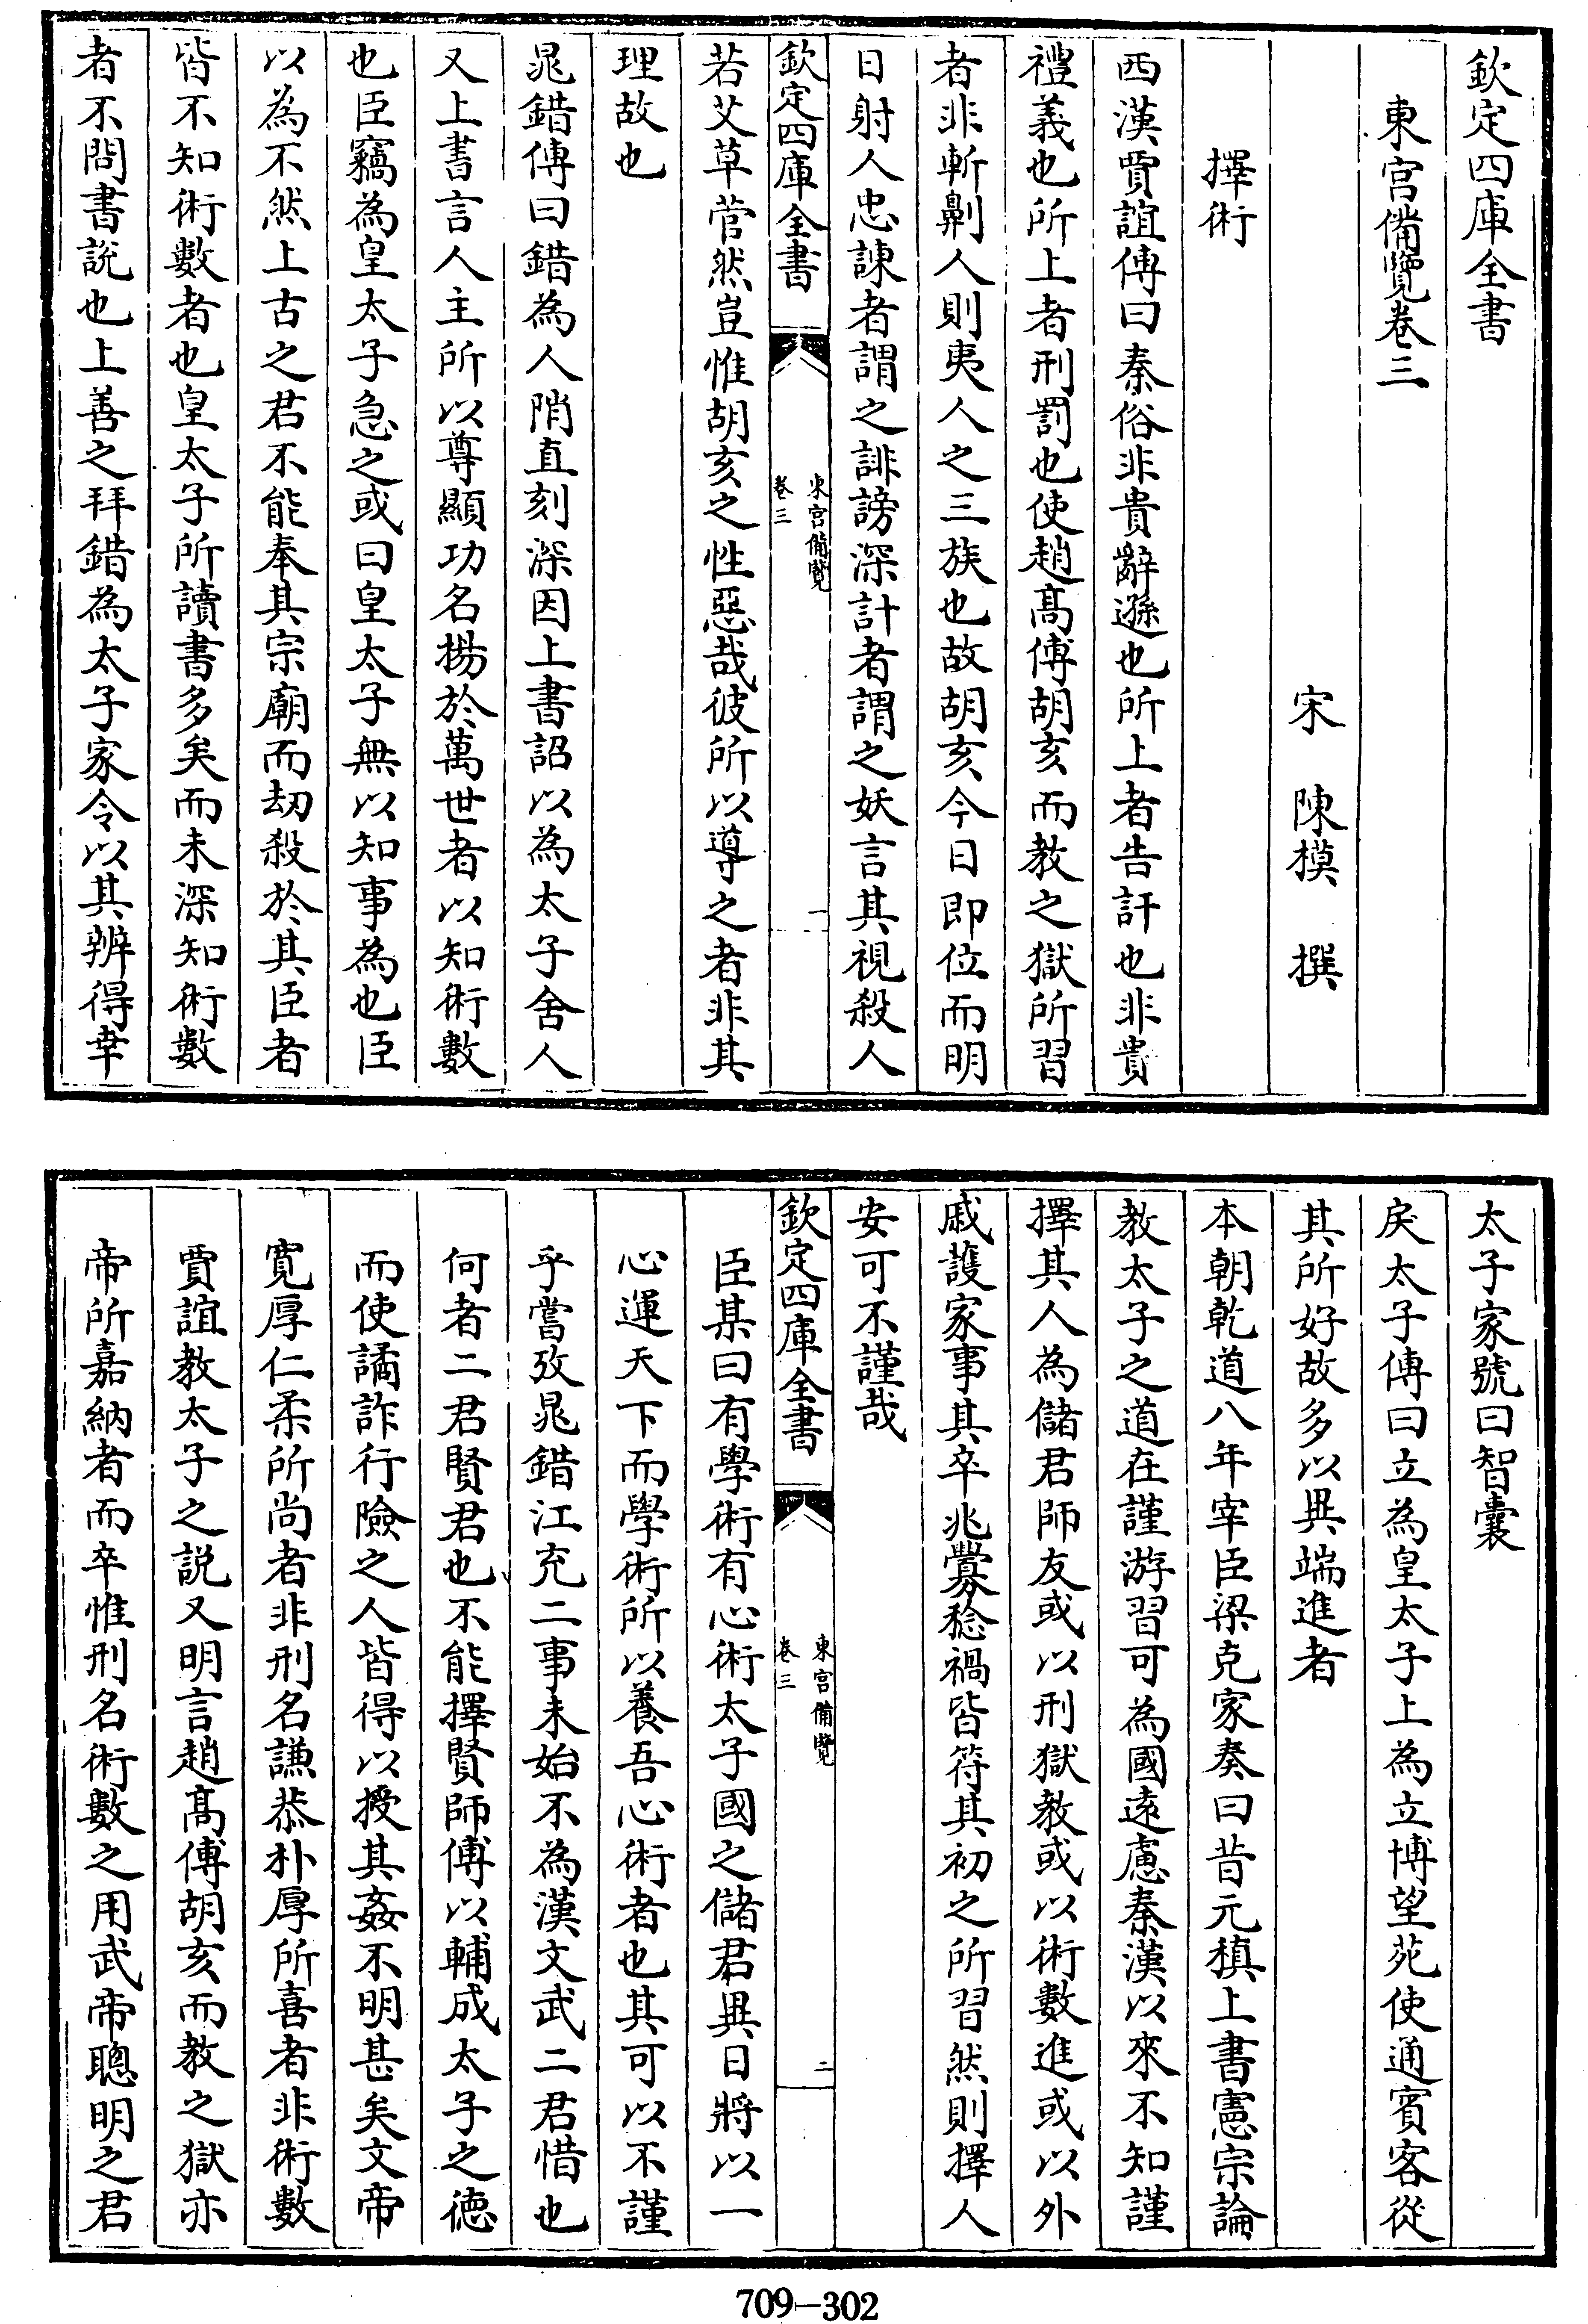 欽定四庫全書
東宮備覽卷三
宋 陳模 撰
擇術
西漢賈誼傳曰秦俗非貴辭遜也所上者告訐也非貴
禮義也所上者刑罰也使趙髙傅胡亥而教之獄所習
者非斬劓人則夷人之三族也故胡亥今日即位而明
日射人忠諫者謂之誹謗深計者謂之妖言其視殺人
欽定四庫全書
東宮備覽
卷三
一
若艾草菅然豈惟胡亥之性惡哉彼所以導之者非其
理故也
晁錯傳曰錯為人陗直刻深因上書詔以為太子舍人
又上書言人主所以尊顯功名揚於萬世者以知術數
也臣竊為皇太子急之或曰皇太子無以知事為也臣
以為不然上古之君不能奉其宗廟而刼殺於其臣者
皆不知術數者也皇太子所讀書多矣而未深知術數
者不問書説也上善之拜錯為太子家令以其辨得幸
太子家號曰智囊
戾太子傳曰立為皇太子上為立博望苑使通賓客從
其所好故多以異端進者
本朝乾道八年宰臣梁克家奏曰昔元稹上書憲宗論
教太子之道在謹游習可為國遠慮秦漢以來不知謹
擇其人為儲君師友或以刑獄教或以術數進或以外
戚䕶家事其卒兆釁稔禍皆符其初之所習然則擇人
安可不謹哉
欽定四庫全書
東宮備覽
卷三
二
臣某曰有學術有心術太子國之儲君異日將以一
心運天下而學術所以養吾心術者也其可以不謹
乎嘗攷晁錯江充二事未始不為漢文武二君惜也
何者二君賢君也不能擇賢師傅以輔成太子之德
而使譎詐行險之人皆得以授其姦不明甚矣文帝
寛厚仁柔所尚者非刑名謙恭朴厚所喜者非術數
賈誼教太子之説又明言趙髙傅胡亥而教之獄亦
帝所嘉納者而卒惟刑名術數之用武帝聰明之君
709-302